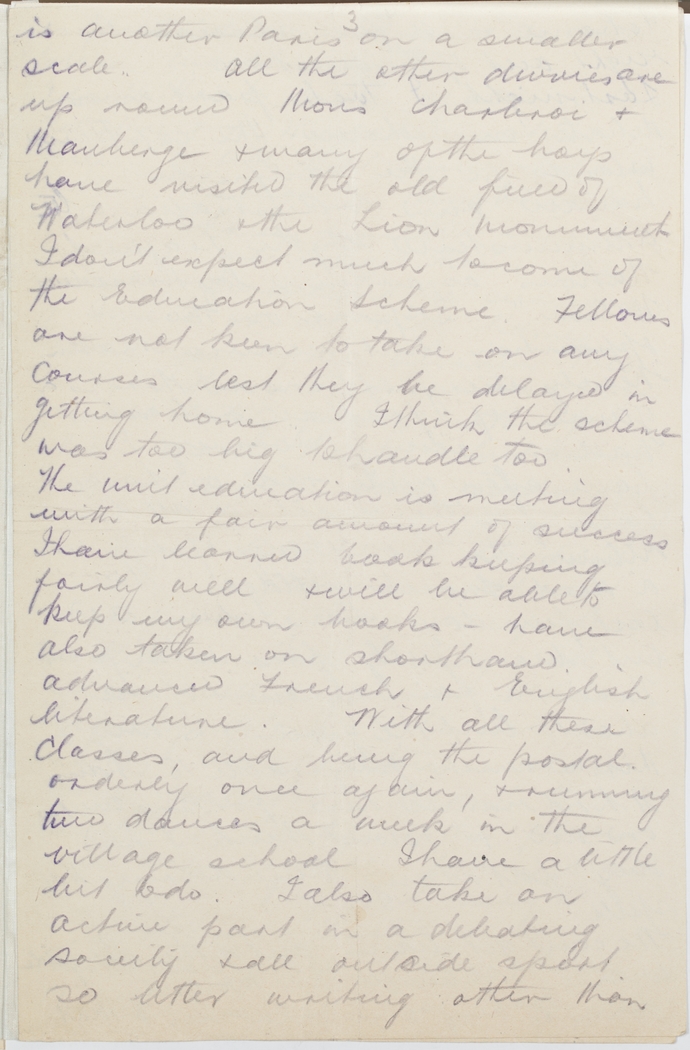 3
is another Paris on a smaller
scale. All the other divvies are
up round Mons Charleroi +
Mauberge + many of the boys
have visited the old field of
Waterloo + the Lion monument
I don't expect much to come of
the Education Scheme. Fellows
are not keen to take on any
courses lest they be delayed in
getting home I think the scheme
was too big to handle too.
The unit education is meeting
with a fair amount of success
I have learned book keeping
fairly well + will be able to
keep my own books - have
also taken on shorthand.
advanced French + English
literature. With all these
classes, and being the postal.
orderly once again, + running
two dances a week in the
village school I have a little
bit to do. I also take an
active part in a debating
society + all outside sport
so letter writing other than